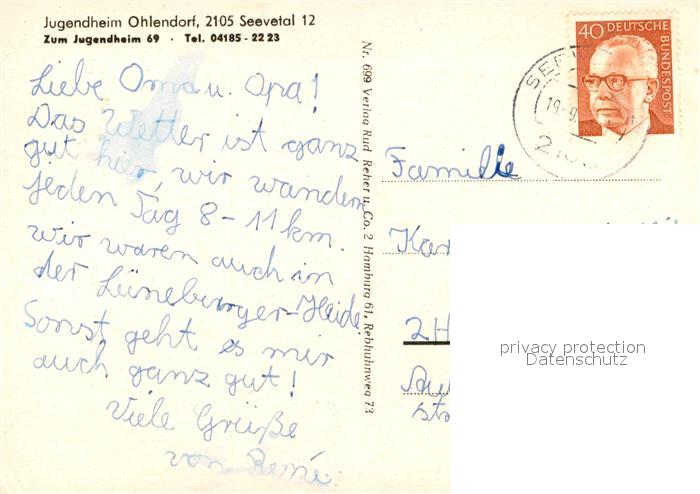 Jugendheim Ohlendorf, 2105 Seevetal 12
Zum Jugendheim 69 · Tel. 04185 - 22 23
Liebe Oma u. Opa!
Das Wetter ist ganz
gut hier, wir wandern
jeden Tag 8-11 km.
wir waren auch in
der Lüneburger-Heide.
Sonst geht es mir
auch ganz gut!
Viele Grüße
von René
Nr. 699 Verlag Rud. Reher u. Co. 2 Hamburg 61, Rebhuhnweg 73
40 DEUTSCHE
BUNDESPOST
SEE
19.-9.
210
Familie
Kar
2H
st
privacy protection
Datenschutz